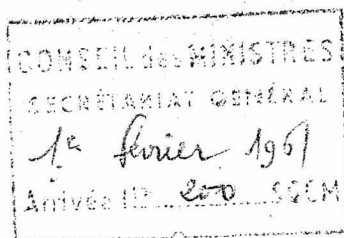 CONSEIL des MINISTRES
SECRÉTARIAT GÉNÉRAL
1er février 1961
Arrivée N° 200 SGCM